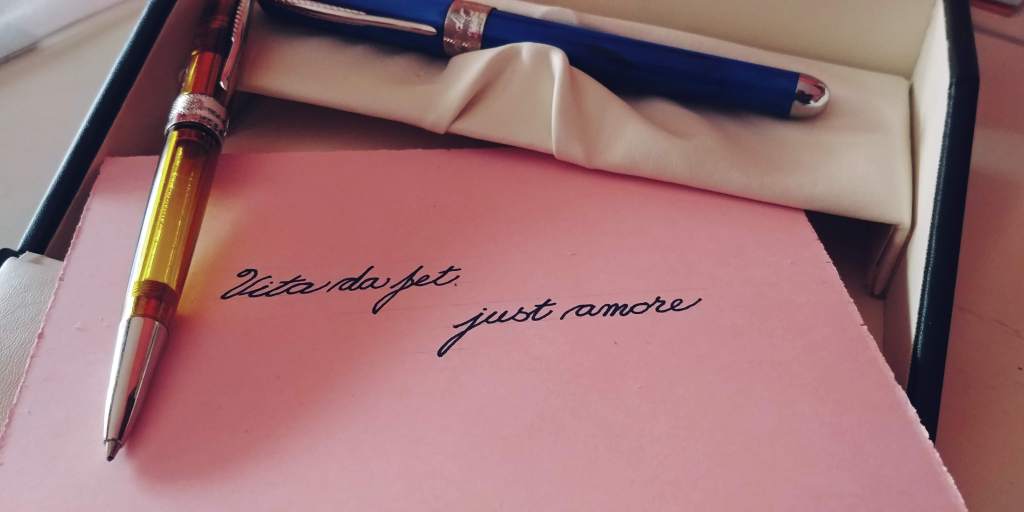 Vita da fet.
just amore